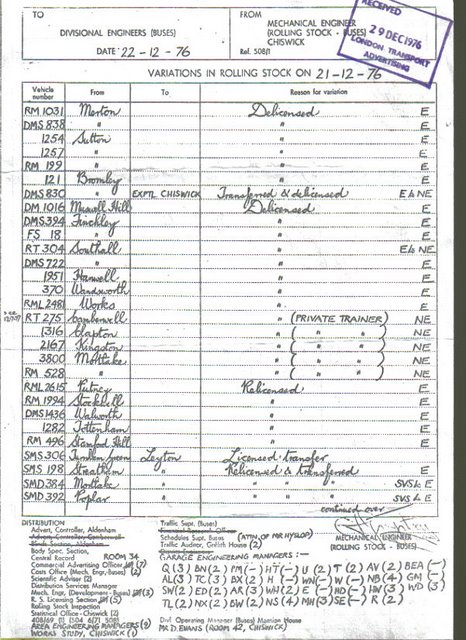 TO
DIVISIONAL ENGINEERS (BUSES)
DATE 22-12-76
FROM
MECHANICAL ENGINEER
(ROLLING STOCK - BUSES)
CHISWICK
Ref. 508/1
RECEIVED
29 DEC 1976
LONDON TRANSPORT
ADVERTISING
VARIATIONS IN ROLLING STOCK ON 21-12-76
Vehicle number From To Reason for variation
RM 1031 Merton Delicensed E
DMS 838 " " E
1254 Sutton " E
1257 " " E
RM 199 " " E
121 Bromley " E
DMS 830 " EXPTL CHISWICK Transferred & delicensed E to NE
DM 1016 Muswell Hill Delicensed E
DMS 394 Finchley " E
FS 18 " " E
RT 304 Southall " E to NE
DMS 722 " " E
1951 Hanwell " E
370 Wandsworth " E
RML 2481 Works " E
RT 275 Camberwell " (PRIVATE TRAINER) NE
1316 Clapton " ( " " ) NE
2167 Kingston " ( " " ) NE
3800 Mortlake " ( " " ) NE
RM 528 " " ( " " ) NE
RML 2615 Putney Relicensed E
RM 1994 Stockwell " E
DMS 1436 Walworth " E
1282 Tottenham " E
RM 496 Stamford Hill " E
SMS 306 Turnham Green Leyton Licensed transfer
SMS 198 Streatham " Relicensed & transferred E
SMD 384 Mortlake " " " " SVS to E
SMD 392 Poplar " " " " SVS to E
continued over
MECHANICAL ENGINEER
(ROLLING STOCK - BUSES)
DISTRIBUTION
Advert. Controller, Aldenham
Advert. Controller Camberwell
Body Spec. Section,
Central Record ROOM 34
Commercial Advertising Officer (7)
Costs Office (Mech. Engr.-Buses) (2)
Scientific Advisor (2)
Distribution Services Manager
Mech. Engr. (Development - Buses) (3)
R. S. Licensing Section (5)
Rolling Stock Inspection
Statistical Office - Chiswick (2)
AREA ENGINEERING MANAGERS (9)
WORKS STUDY, CHISWICK (1)
Traffic Supt. (Buses)
Schedules Supt. Buses (ATTN. OF MR HYSLOP)
Traffic Auditor, Griffith House (2)
GARAGE ENGINEERING MANAGERS :-
Div. Operating Manager (Buses) Marison House
MR D. EVANS (ROOM 42, CHISWICK)